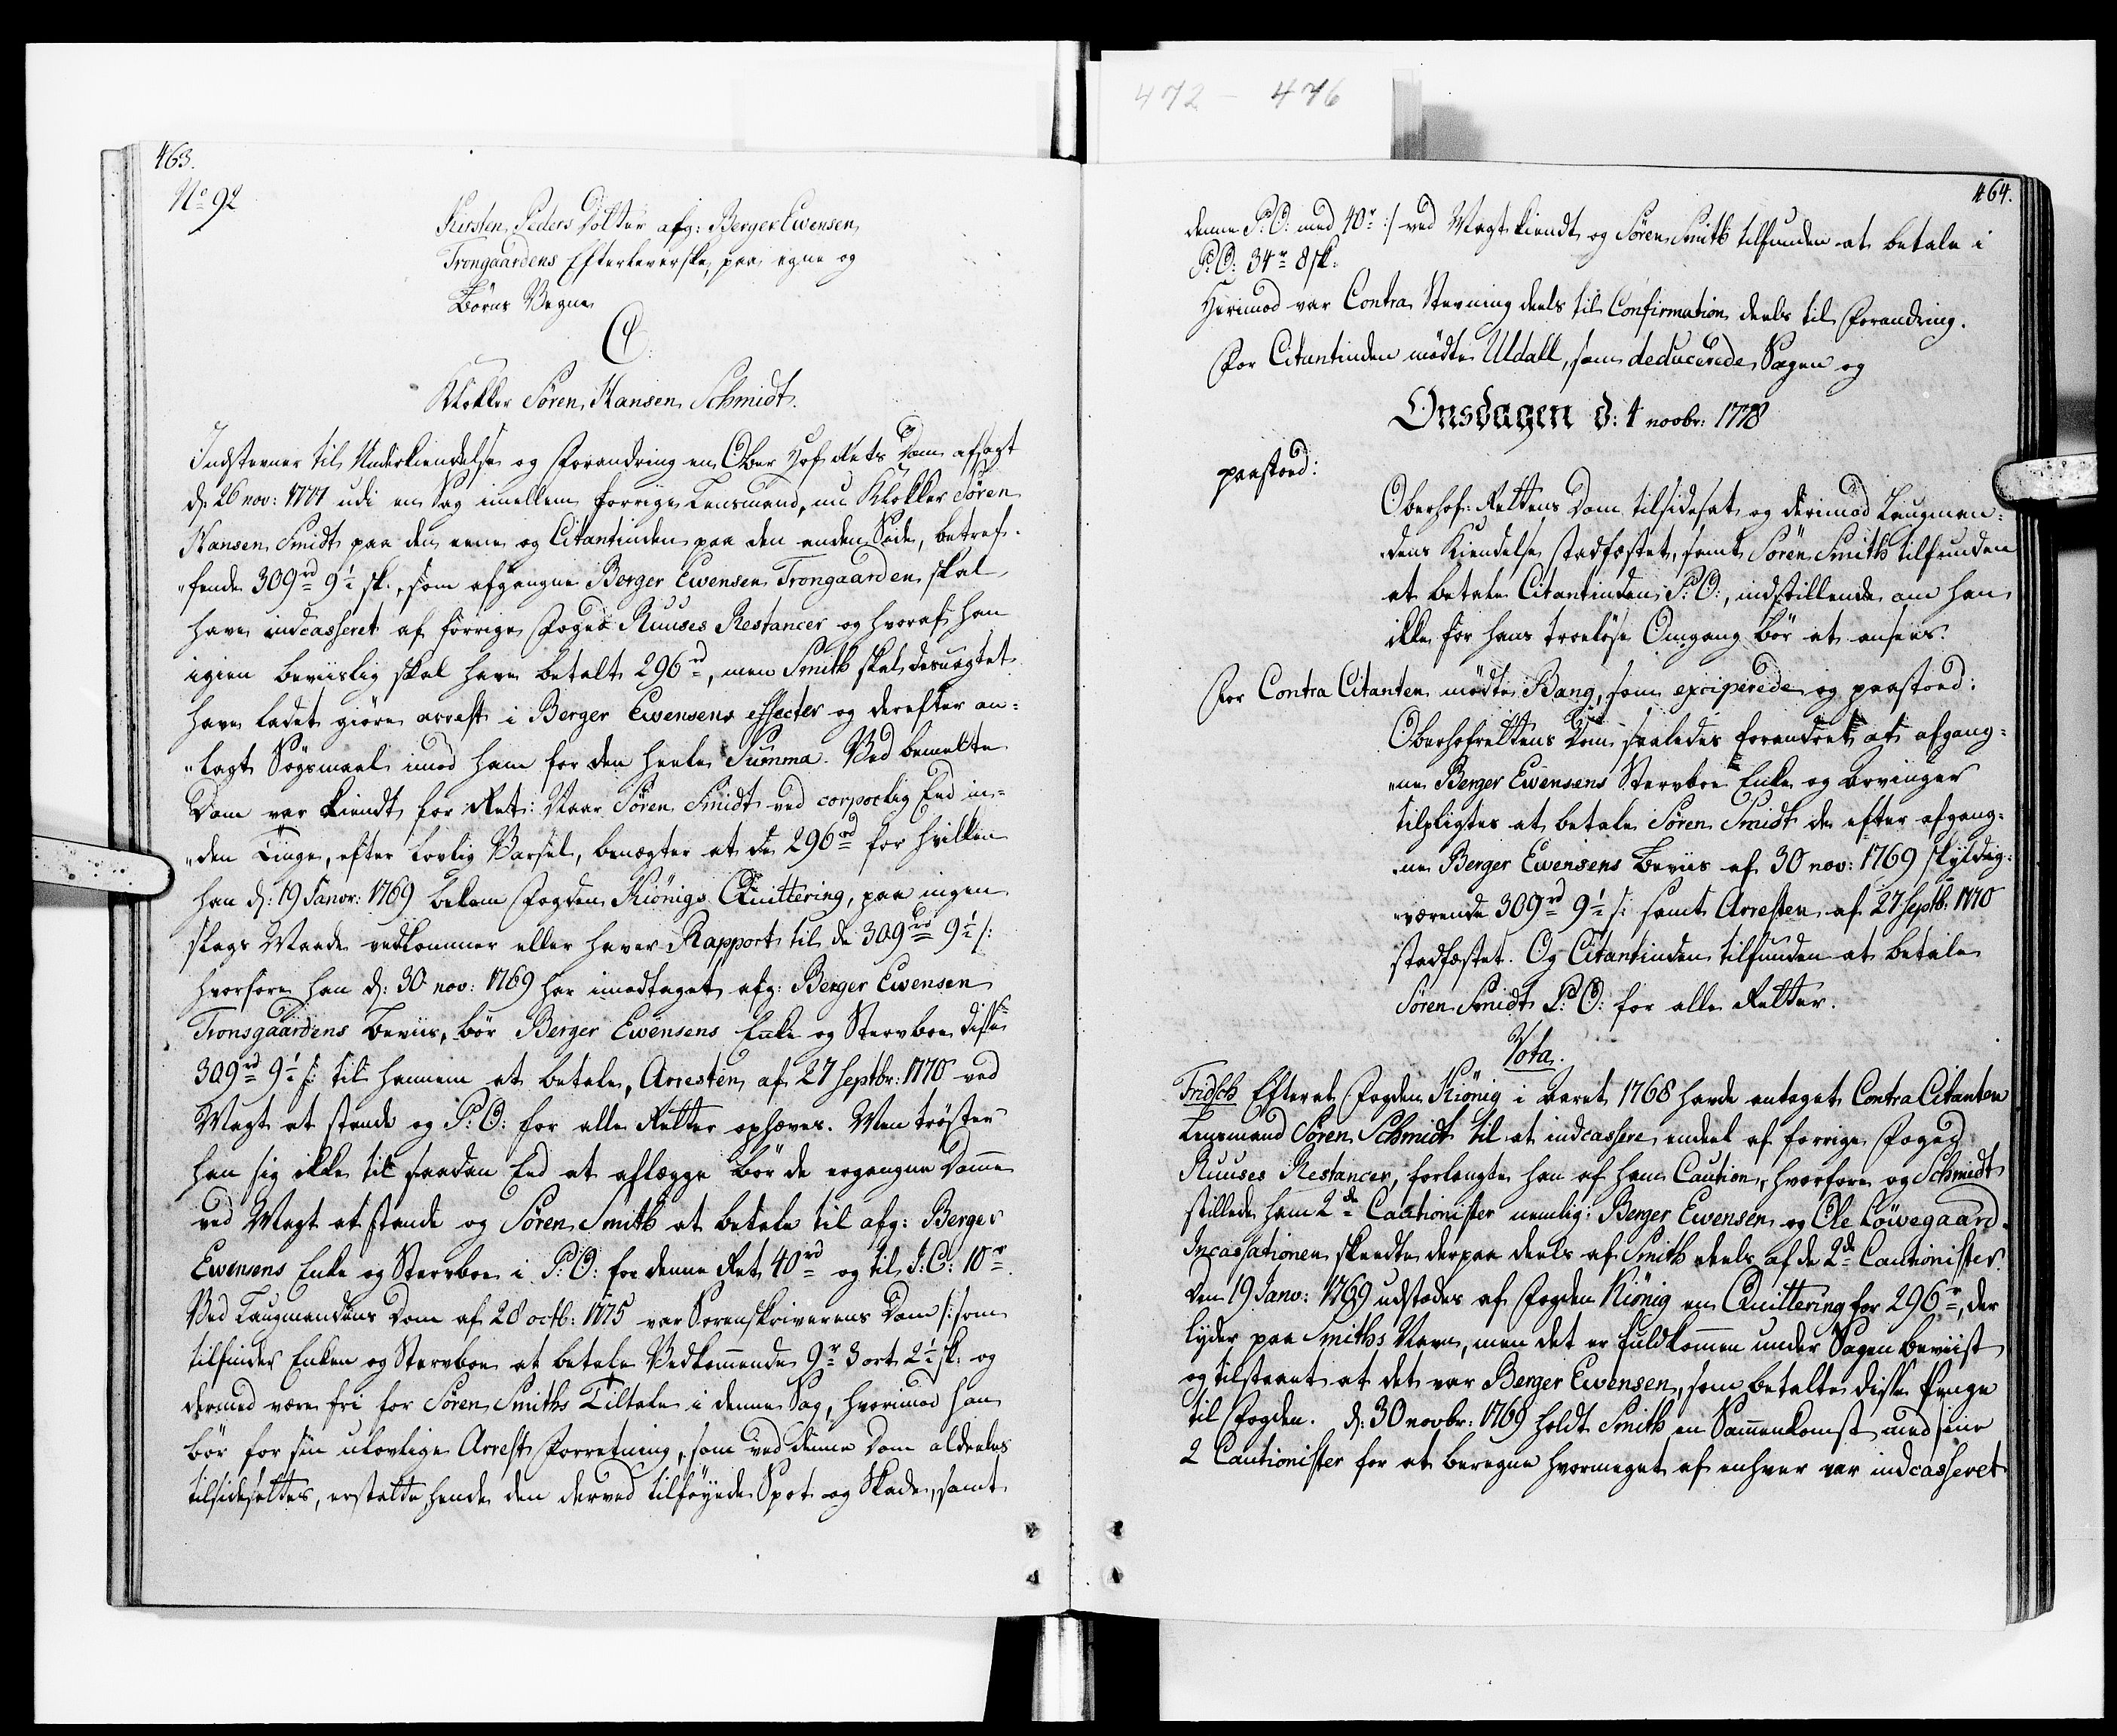 463.
No 92
Kirsten Peders Dotter afg: Berger Ewensen
Trongaardens Efterleverske, paa egne og
Børns Vegne
C:
Klokker Søren Hansen Schmidt.
Indstevner til Underkiendelse og Forandring en Ober Hof Rets Dom afsagt
d: 26 nov: 1777 udi en Sag imellem forrige Lensmand, nu Klokker Søren
Hansen Smidt paa den eene og Citantinden paa den anden Side, betref-
„fende 309rd 9½ sk., som afgangne Berger Ewensen Trongaarden skal
have indcasseret af forrige Foged Ruuses Restancer og hvoraf han
igien beviislig skal have betalt 296rd, men Smith skal desuagtet
have ladet giøre arrest i Berger Ewensens effecter og derefter an-
„lagt Søgsmaal imod ham for den heele Summa. Ved bemelte
Dom var kiendt for Ret: Naar Søren Smidt ved corporlig Eed in-
„den Tinge, efter lovlig Varsel, benægter at de 296rd for hvilken
han d: 19 Janvr: 1769 bekom Fogden Kiönigs Quittering, paa ingen
slags Maade vedkommer eller haver Rapport til de 309rd 9½ s:
hvorfore han d: 30 nov: 1769 har imodtaget afg: Berger Ewensen
Tronsgaardens Beviis, bør Berger Ewensens Enke og Stervboe disse
309rd 9½ s: til hannem at betale, Arresten af 27 Septbr: 1770 ved
Magt at stande og P: O: for alle Retter ophæves. Men trøster
han sig ikke til saadan Eed at aflægge bør de ergangne Domme
ved Magt at stande og Søren Smith at betale til afg: Berger
Ewensens Enke og Stervboe i P: O: for denne Ret 40rd og til J: C: 10r.
Ved Laugmandens Dom af 28 octb: 1775 var Sorenskriverens Dom /: som
tilfinder Enken og Stervboe at betale Vedkommende 9r 3 ort 2½ sk: og
dermed være fri for Søren Smiths Tiltale i denne Sag, hvorimod han
bør for sin ulovlige Arrest Forretning, som ved denne Dom aldeeles
tilsidesættes, erstatte hende den derved tilføyede Spot og Skade, samt
472 - 476
464.
denne P: O: med 40r :/ ved Magt kiendt og Søren Smith tilfunden at betale i
P: O: 34r 8 sk:
Herimod var Contra Stevning deels til Confirmation deels til Forandring.
For Citantinden mødte Udall, som deducerede Sagen og
Onsdagen d: 4 novbr: 1778
paastoed:
Oberhof-Rettens Dom tilsidesat og derimod Laugman-
„dens Kiendelse stadfæstet, samt Søren Smith tilfunden
at betale Citantinden P: O:, indstillende om han
ikke for hans troeløse Omgang bør at ansees.
For Contra Citanten mødte Bang, som exciperede og paastoed:
Oberhofrettens Dom saaledes forandret at afgang-
„ne Berger Ewensens Stervboe Enke og Arvinger
tilpligtes at betale Søren Smidt de efter afgang-
„ne Berger Ewensens Beviis af 30 nov: 1769 skyldig-
„værende 309rd 9½ s: samt Arresten af 27 Septb: 1770
stadfæstet. Og Citantinden tilfunden at betale
Søren Smidt P: O: for alle Retter.
Vota.
Fridsch Efterat Fogden Kiönig i Aaret 1768 havde antaget Contra Citanten
Lensmand Søren Schmidt til at indcassere endeel af forrige Foged
Ruuses Restancer, forlangte han af ham Caution, hvorfore og Schmidt
stillede ham 2de Cautionister nemlig: Berger Ewensen og Ole Löwegaard.
Incassationen skeedte derpaa deels af Smith deels af de 2de Cautionister.
Den 19 Janv: 1769 udstædes af Fogden Kiönig en Quittering for 296r, der
lyder paa Smiths Navn, men det er fuldkommen under Sagen beviist
og tilstaaet at det var Berger Ewensen, som betalte disse Penge
til Fogden. d: 30 novbr: 1769 holdt Smith en Sammenkomst med sine
2 Cautionister for at beregne hvormeget af enhver var indcasseret